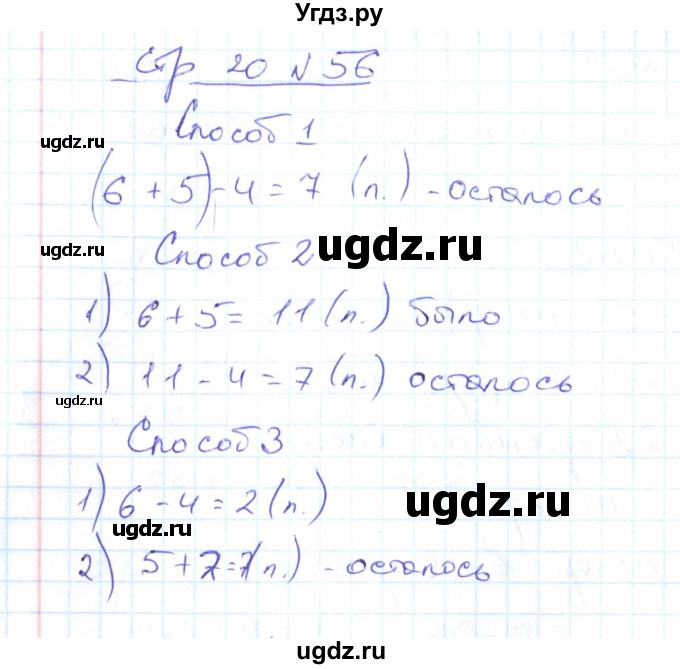 Угдз.ру
стр 20 № 56
ugdz.ru
Способ 1
ugdz.ru
(6 + 5) - 4 = 7 (п.) - осталось
ugdz.ru
Способ 2
ugdz.ru
1) 6 + 5 = 11 (п.) было
2) 11 - 4 = 7 (п.) осталось
ugdz.ru
Способ 3
1) 6 - 4 = 2 (п.)
ugdz.ru
ugdz.ru
2) 5 + 2 = 7 (п.) - осталось
ugdz.ru